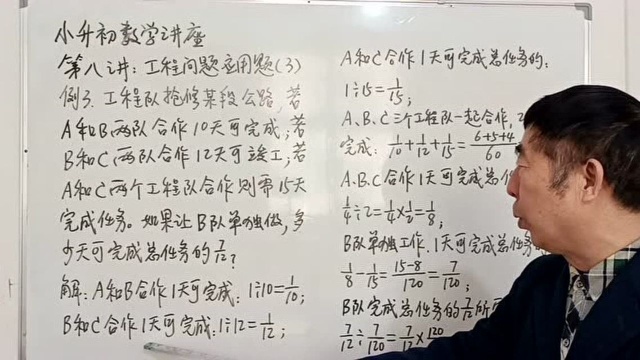 小升初数学讲座
第八讲：工程问题应用题(3)
例3.工程队抢修某段公路,若
A和B两队合作10天可完成,若
B和C两队合作12天可竣工,若
A和C两个工程队合作则需15天
完成任务。如果让B队单独做,多
少天可完成总任务的7/12?
解:A和B合作1天可完成:1÷10=1/10;
B和C合作1天可完成:1÷12=1/12;
A和C合作1天可完成总任务的:
1÷15=1/15;
A、B、C三个工程队一起合作,2
完成:1/10+1/12+1/15=6+5+4/60
A.B.C合作1天可完成总任
1/4÷2=1/4×1/2=1/8;
B队单独工作.1天可完成总任务
1/8-1/15=15-8/120=7/120;
B队完成总任务的7/12所
7/12÷7/120=7/12×120